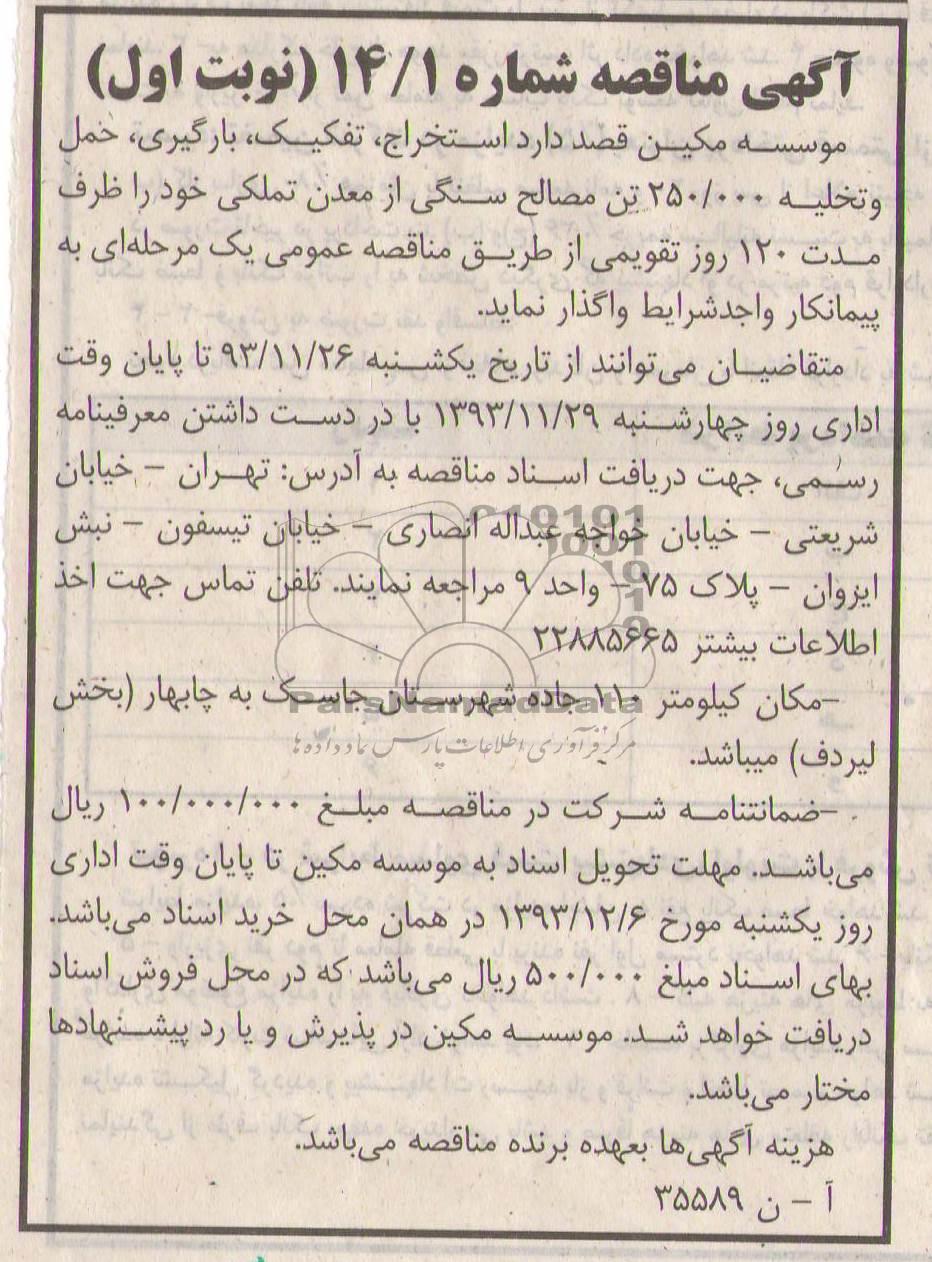 آگهی مناقصه شماره ۱۴/۱ (نوبت اول)
موسسه مکین قصد دارد استخراج، تفکیک، بارگیری، حمل
وتخلیه ۲۵۰/۰۰۰ تن مصالح سنگی از معدن تملکی خود را ظرف
مدت ۱۲۰ روز تقویمی از طریق مناقصه عمومی یک مرحله‌ای به
پیمانکار واجدشرایط واگذار نماید.
متقاضیان می‌توانند از تاریخ یکشنبه ۹۳/۱۱/۲۶ تا پایان وقت
اداری روز چهارشنبه ۱۳۹۳/۱۱/۲۹ با در دست داشتن معرفینامه
رسمی، جهت دریافت اسناد مناقصه به آدرس: تهران – خیابان
شریعتی – خیابان خواجه عبداله انصاری – خیابان تیسفون – نبش
ایزوان – پلاک ۷۵ – واحد ۹ مراجعه نمایند. تلفن تماس جهت اخذ
اطلاعات بیشتر ۲۲۸۸۵۶۶۵
–مکان کیلومتر ۱۱۰ جاده شهرستان جاسک به چابهار (بخش
لیردف) میباشد.
–ضمانتنامه شرکت در مناقصه مبلغ ۱۰۰/۰۰۰/۰۰۰ ریال
می‌باشد. مهلت تحویل اسناد به موسسه مکین تا پایان وقت اداری
روز یکشنبه مورخ ۱۳۹۳/۱۲/۶ در همان محل خرید اسناد می‌باشد.
بهای اسناد مبلغ ۵۰۰/۰۰۰ ریال می‌باشد که در محل فروش اسناد
دریافت خواهد شد. موسسه مکین در پذیرش و یا رد پیشنهادها
مختار می‌باشد.
هزینه آگهی‌ها بعهده برنده مناقصه می‌باشد.
آ – ن ۳۵۵۸۹
ParsNamadData
مرکز فرآوری اطلاعات پارس نماد داده‌ها